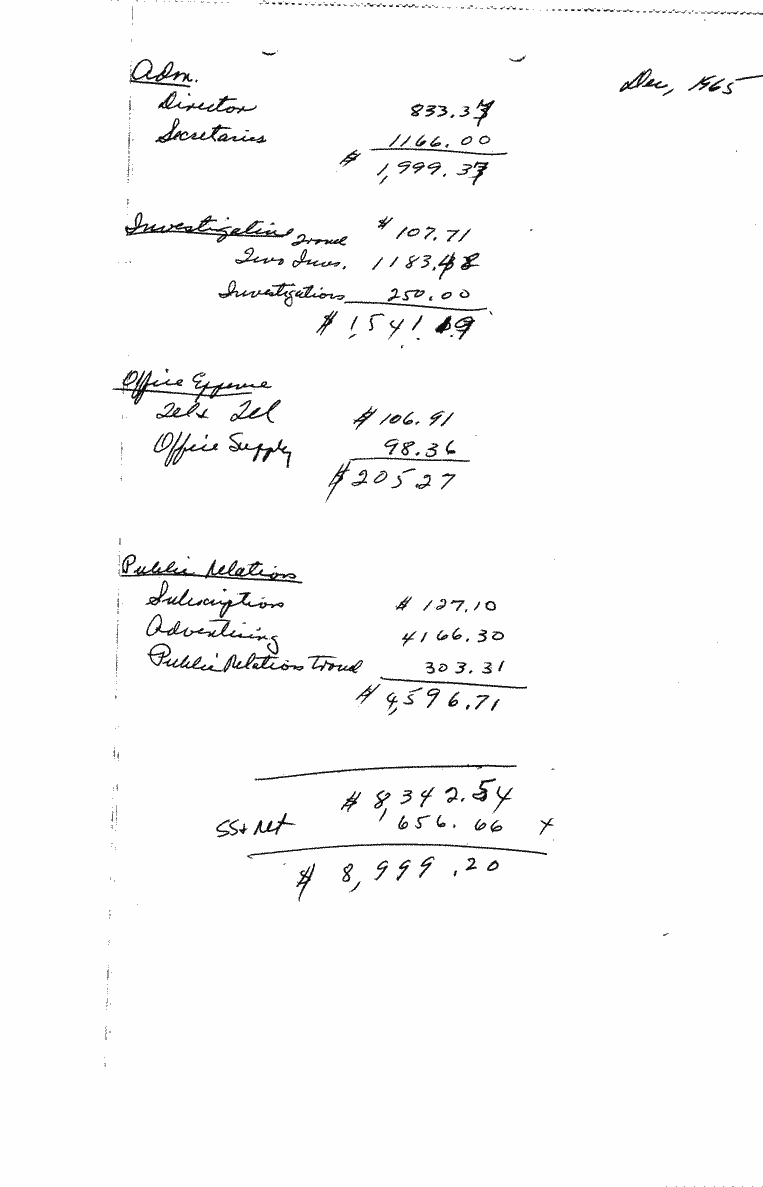 Dec, 1965
Adm.
Director 833.37
Secretaries 1166.00
$ 1,999.37
Investigative Travel $ 107.71
Two Invs. 1183.48
Investigations 250.00
$ 1,541.19
Office Expense
Tel & Tel $ 106.91
Office Supply 98.36
$ 205 27
Public Relations
Subscriptions $ 127.10
Advertising 4166.30
Public Relations Travel 303.31
$ 4,596.71
$ 8,342.54
SS + Ret 656.66 +
$ 8,999.20